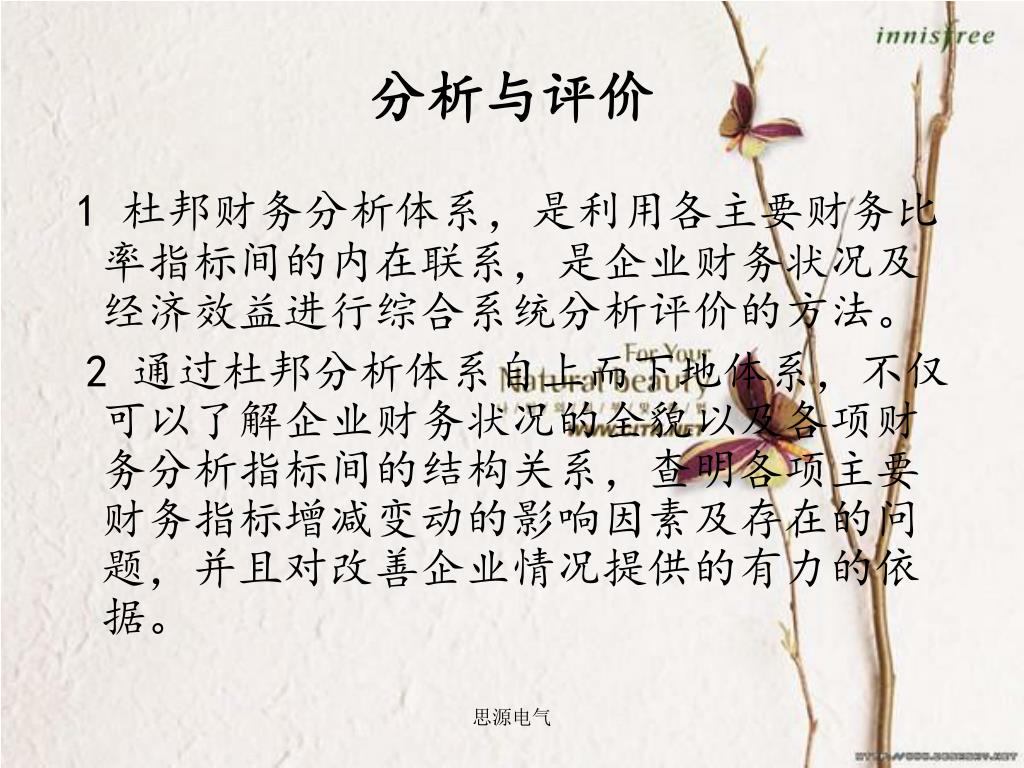 innisfree
分析与评价
1 杜邦财务分析体系，是利用各主要财务比
率指标间的内在联系，是企业财务状况及
经济效益进行综合系统分析评价的方法。
2 通过杜邦分析体系自上而下地体系，不仅
可以了解企业财务状况的全貌以及各项财
务分析指标间的结构关系，查明各项主要
财务指标增减变动的影响因素及存在的问
题，并且对改善企业情况提供的有力的依
据。
For Your
Natural beauty
思源电气